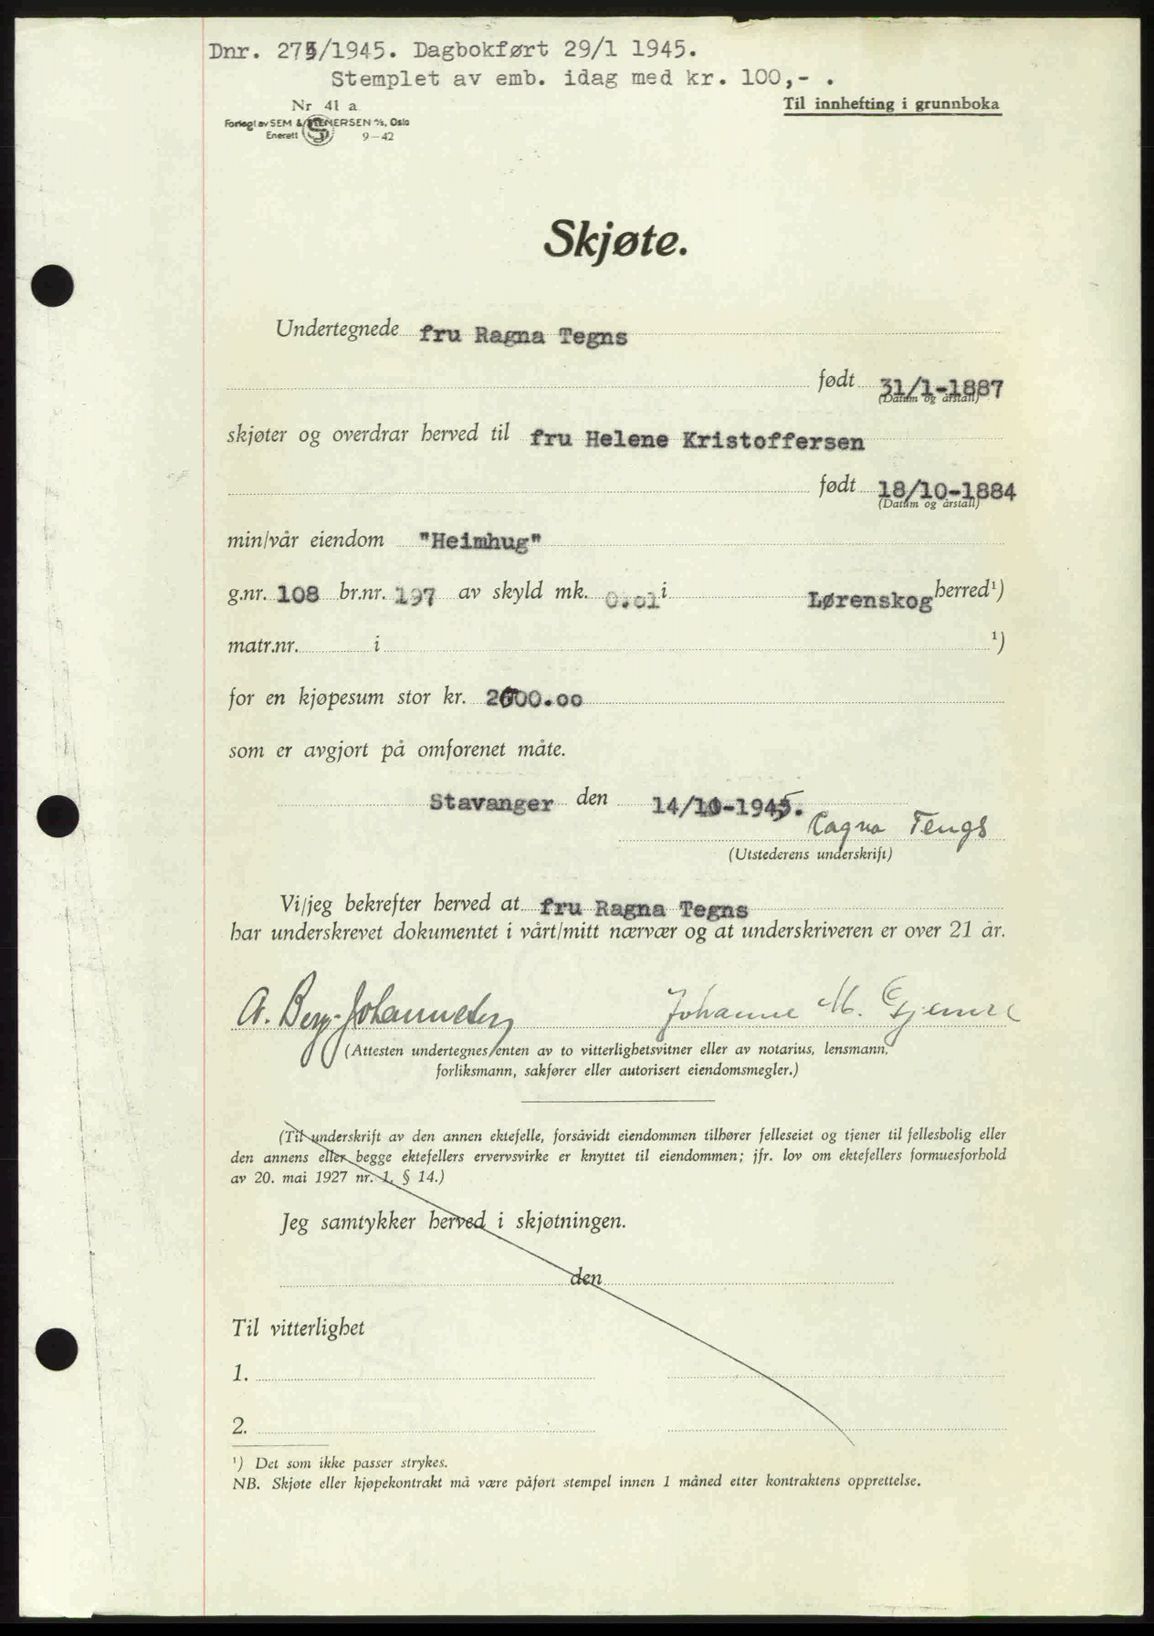 Dnr. 275/1945. Dagbokført 29/1 1945.
Stemplet av emb. idag med kr. 100,- .
Nr 41 a
Til innhefting i grunnboka
Forlagt av SEM & STENERSEN A/S, Oslo
Enerett 9-42
Skjøte.
Undertegnede fru Ragna Tegns
født 31/1-1887
(Datum og årstall)
skjøter og overdrar herved til fru Helene Kristoffersen
født 18/10-1884
(Datum og årstall)
min/vår eiendom "Heimhug"
g.nr. 108 br.nr. 197 av skyld mk. 0.01 i Lørenskog herred¹)
matr.nr. i ¹)
for en kjøpesum stor kr. 2000.00
som er avgjort på omforenet måte.
Stavanger den 14/ -1945.
Ragna Tengs
(Utstederens underskrift)
Vi/jeg bekrefter herved at fru Ragna Tegns
har underskrevet dokumentet i vårt/mitt nærvær og at underskriveren er over 21 år.
A. Berg-Johannesen Johanne M.
(Attesten undertegnes enten av to vitterlighetsvitner eller av notarius, lensmann,
forliksmann, sakfører eller autorisert eiendomsmegler.)
(Til underskrift av den annen ektefelle, forsåvidt eiendommen tilhører felleseiet og tjener til fellesbolig eller
den annens eller begge ektefellers ervervsvirke er knyttet til eiendommen; jfr. lov om ektefellers formuesforhold
av 20. mai 1927 nr. 1, § 14.)
Jeg samtykker herved i skjøtningen.
den
Til vitterlighet
1.
2.
¹) Det som ikke passer strykes.
NB. Skjøte eller kjøpekontrakt må være påført stempel innen 1 måned etter kontraktens opprettelse.